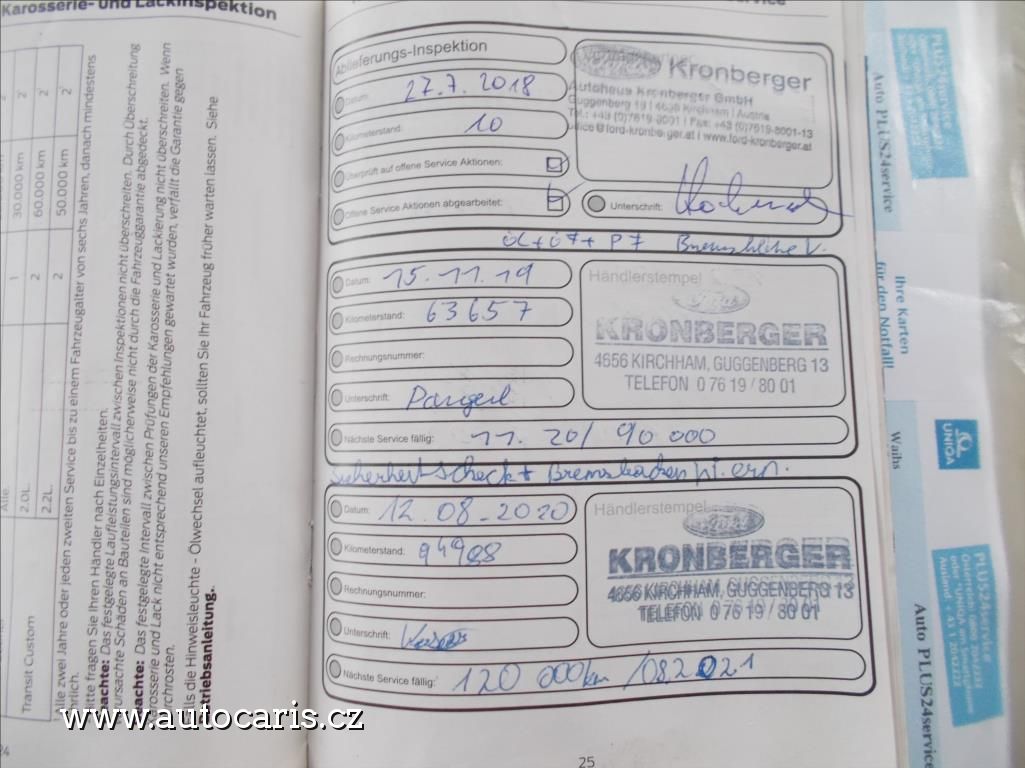 Karosserie- und Lackinspektion
Alle.
2.0L.
2.2L.
Transit Custom
1
2
2
30.000 km
60.000 km
50.000 km
2
2
2
Alle zwei Jahre oder jeden zweiten Service bis zu einem Fahrzeugalter von sechs Jahren, danach mindestens
jährlich.
Bitte fragen Sie Ihren Händler nach Einzelheiten.
Das festgelegte Laufleistungsintervall zwischen Inspektionen nicht überschreiten. Durch Überschreitung
verursachte Schäden an Bauteilen sind möglicherweise nicht durch die Fahrzeuggarantie abgedeckt.
Das festgelegte Intervall zwischen Prüfungen der Karosserie und Lackierung nicht überschreiten. Wenn
Karosserie und Lack nicht entsprechend unseren Empfehlungen gewartet wurden, verfällt die Garantie gegen
Durchrosten.
Falls die Hinweisleuchte - Ölwechsel aufleuchtet, sollten Sie Ihr Fahrzeug früher warten lassen. Siehe
Betriebsanleitung.
24
Ablieferungs-Inspektion
Datum: 27.7.2018
Kilometerstand: 10
Überprüft auf offene Service Aktionen:
Offene Service Aktionen abgearbeitet:
Kronberger
Autohaus Kronberger GmbH
Guggenberg 19 | 4656 Kirchham | Austria
Tel.: +43 (0)7619-8001 | Fax: +43 (0)7619-8001-13
office@ford-kronberger.at | www.ford-kronberger.at
Unterschrift:
Datum: 15.11.19
Kilometerstand: 63657
Rechnungsnummer:
Unterschrift: Pangerl
Nächste Service fällig: 11.20/ 90 000
Händlerstempel
Ford
KRONBERGER
4656 KIRCHHAM, GUGGENBERG 13
TELEFON 0 76 19 / 80 01
Sicherheitscheck + Bremsbacken hi. ern.
Datum: 12.08-2020
Kilometerstand: 94988
Rechnungsnummer:
Unterschrift:
Nächste Service fällig: 120 000km /08.2021
Händlerstempel
Ford
KRONBERGER
4656 KIRCHHAM, GUGGENBERG 13
TELEFON 0 76 19 / 80 01
25
PLUS24service
Auto PLUS24service
Ihre Karten
für den Notfall!
UNIQA
Waihs
PLUS24service
Österreich: 0800 204 2222
oder UNIQA am Smartphone
Ausland + 43 1 2042222
Auto PLUS24service
www.autocaris.cz